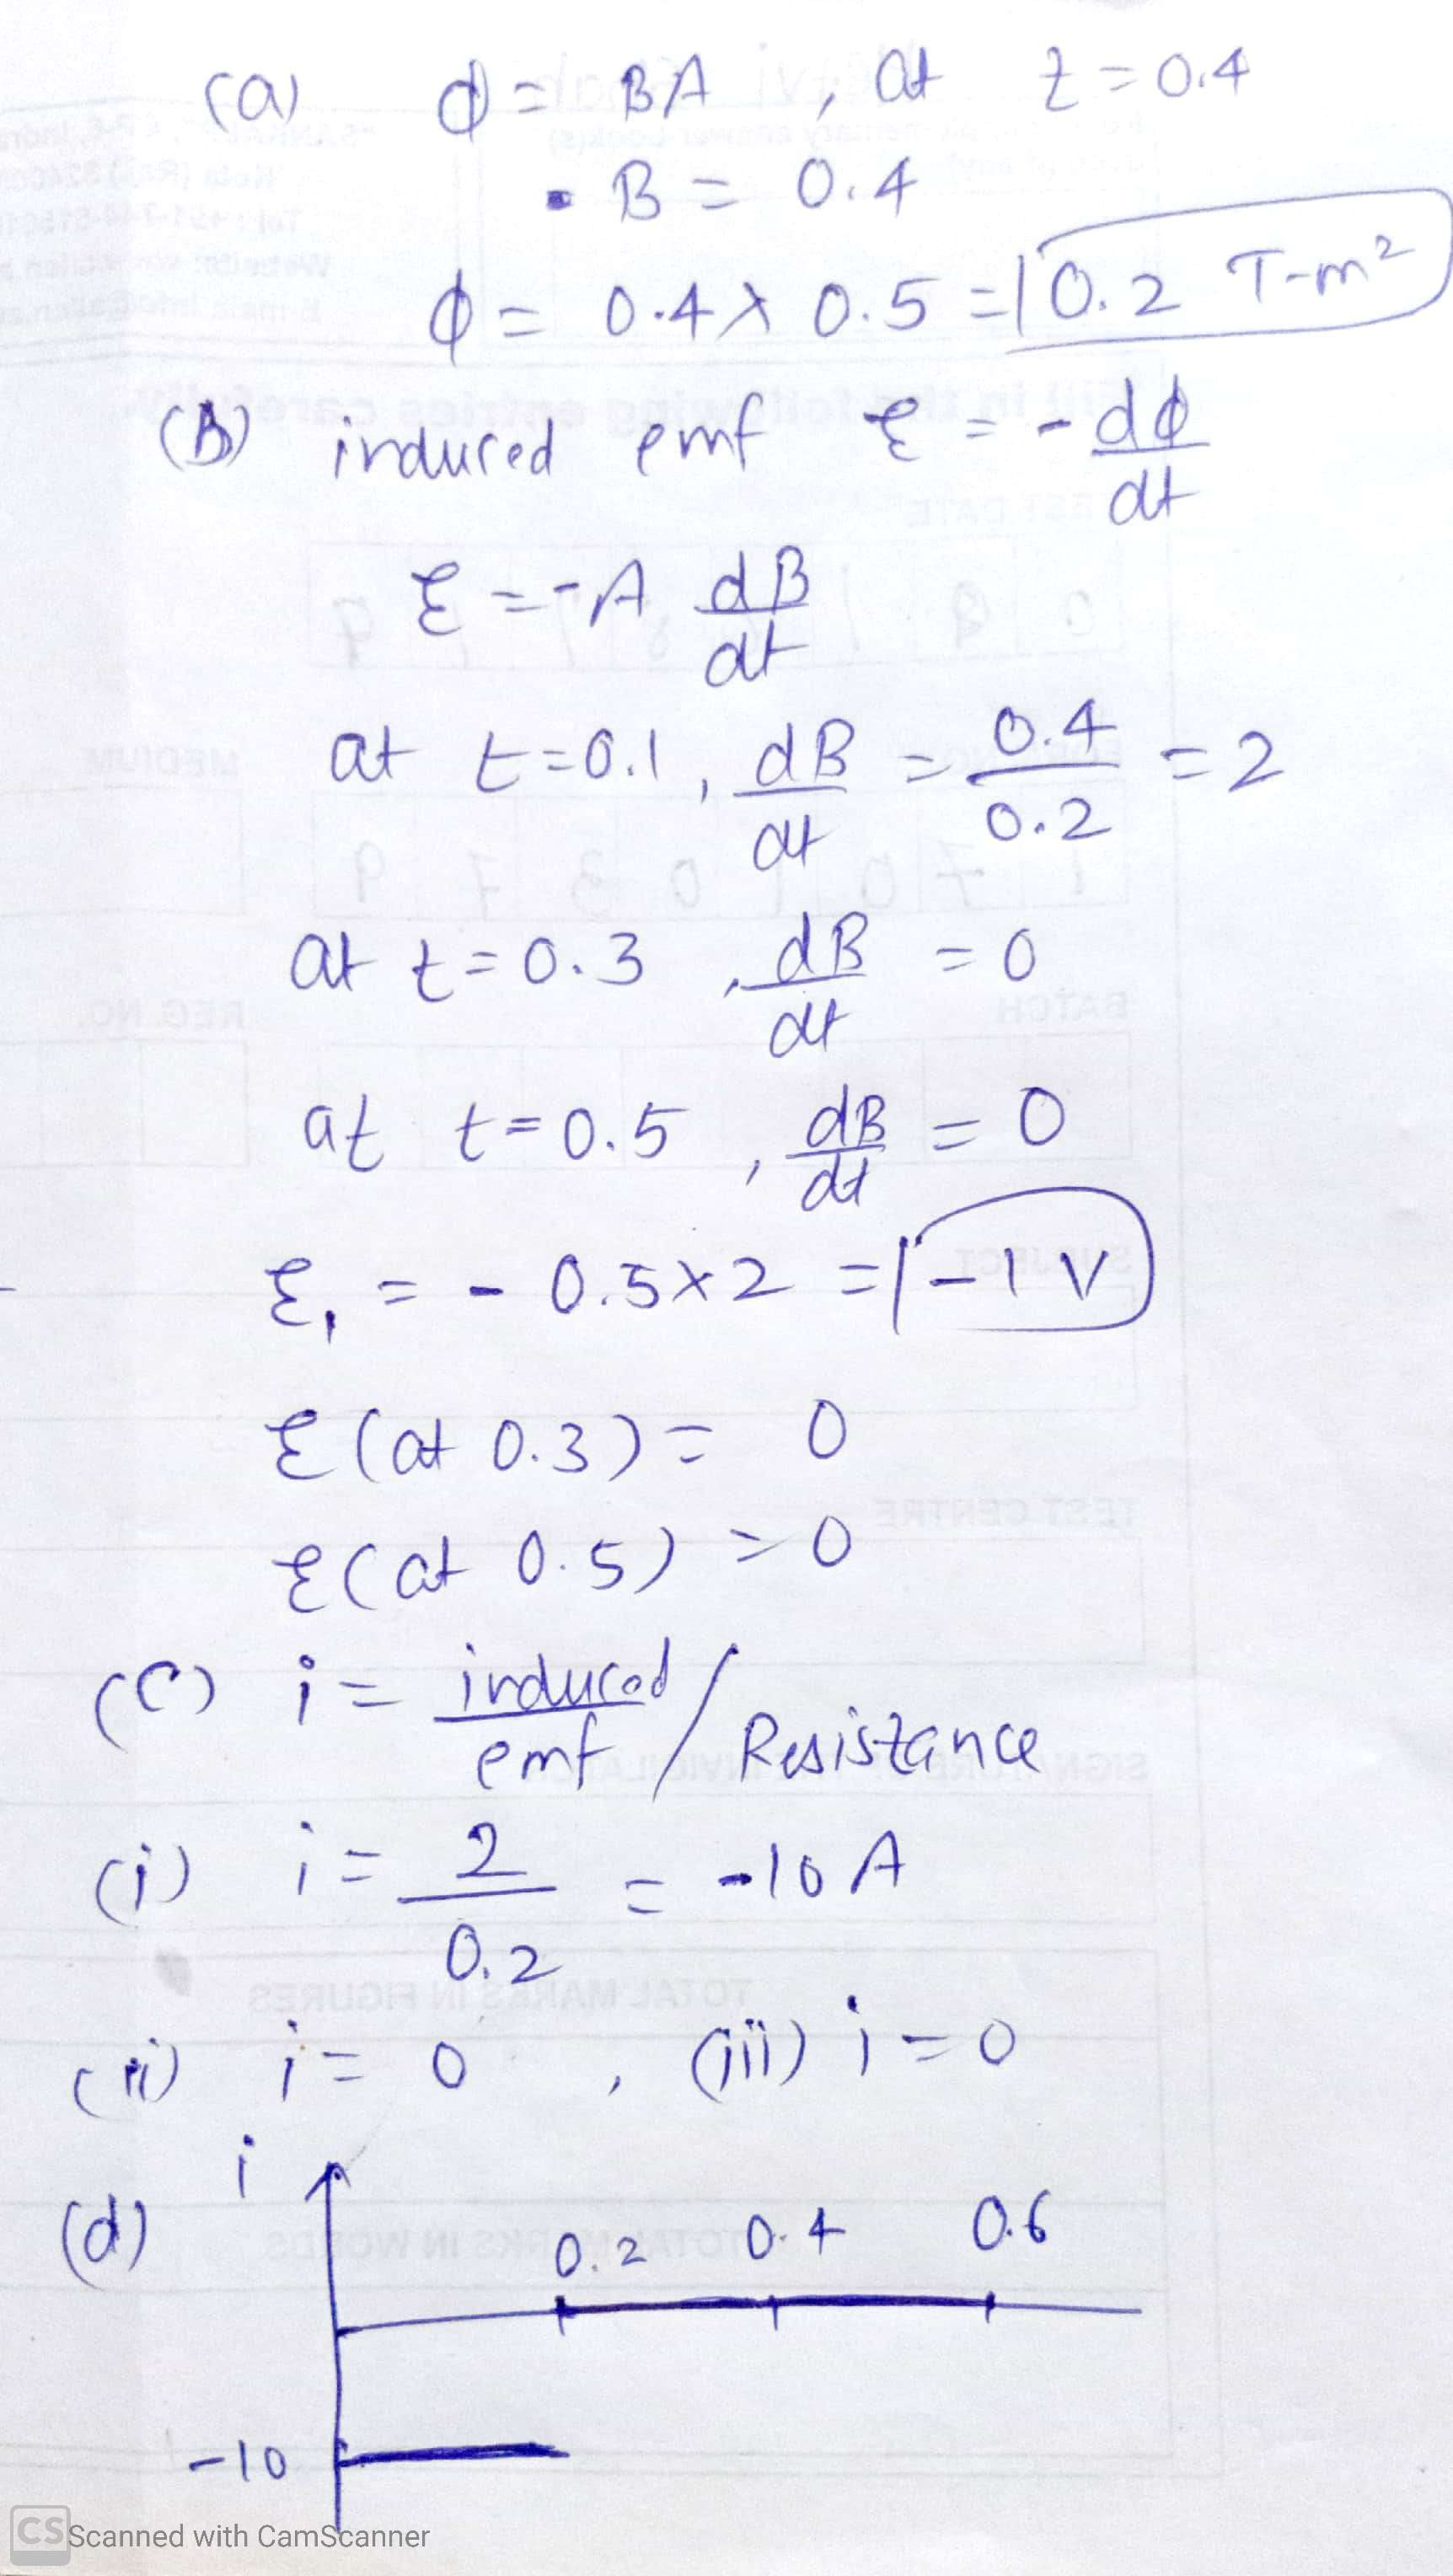 (a) ϕ = BA , at t = 0.4
B = 0.4
ϕ = 0.4 × 0.5 = 0.2 T-m²
(B) induced emf ℰ = - dϕ/dt
ℰ = -A dB/dt
at t=0.1, dB/dt = 0.4/0.2 = 2
at t=0.3, dB/dt = 0
at t=0.5, dB/dt = 0
ℰ₁ = - 0.5×2 = -1 V
ℰ (at 0.3) = 0
ℰ (at 0.5) = 0
(C) i = induced emf / Resistance
(i) i = 2/0.2 = -10 A
(ii) i = 0 , (iii) i = 0
(d) i
0.2 0.4 0.6
-10
CS Scanned with CamScanner